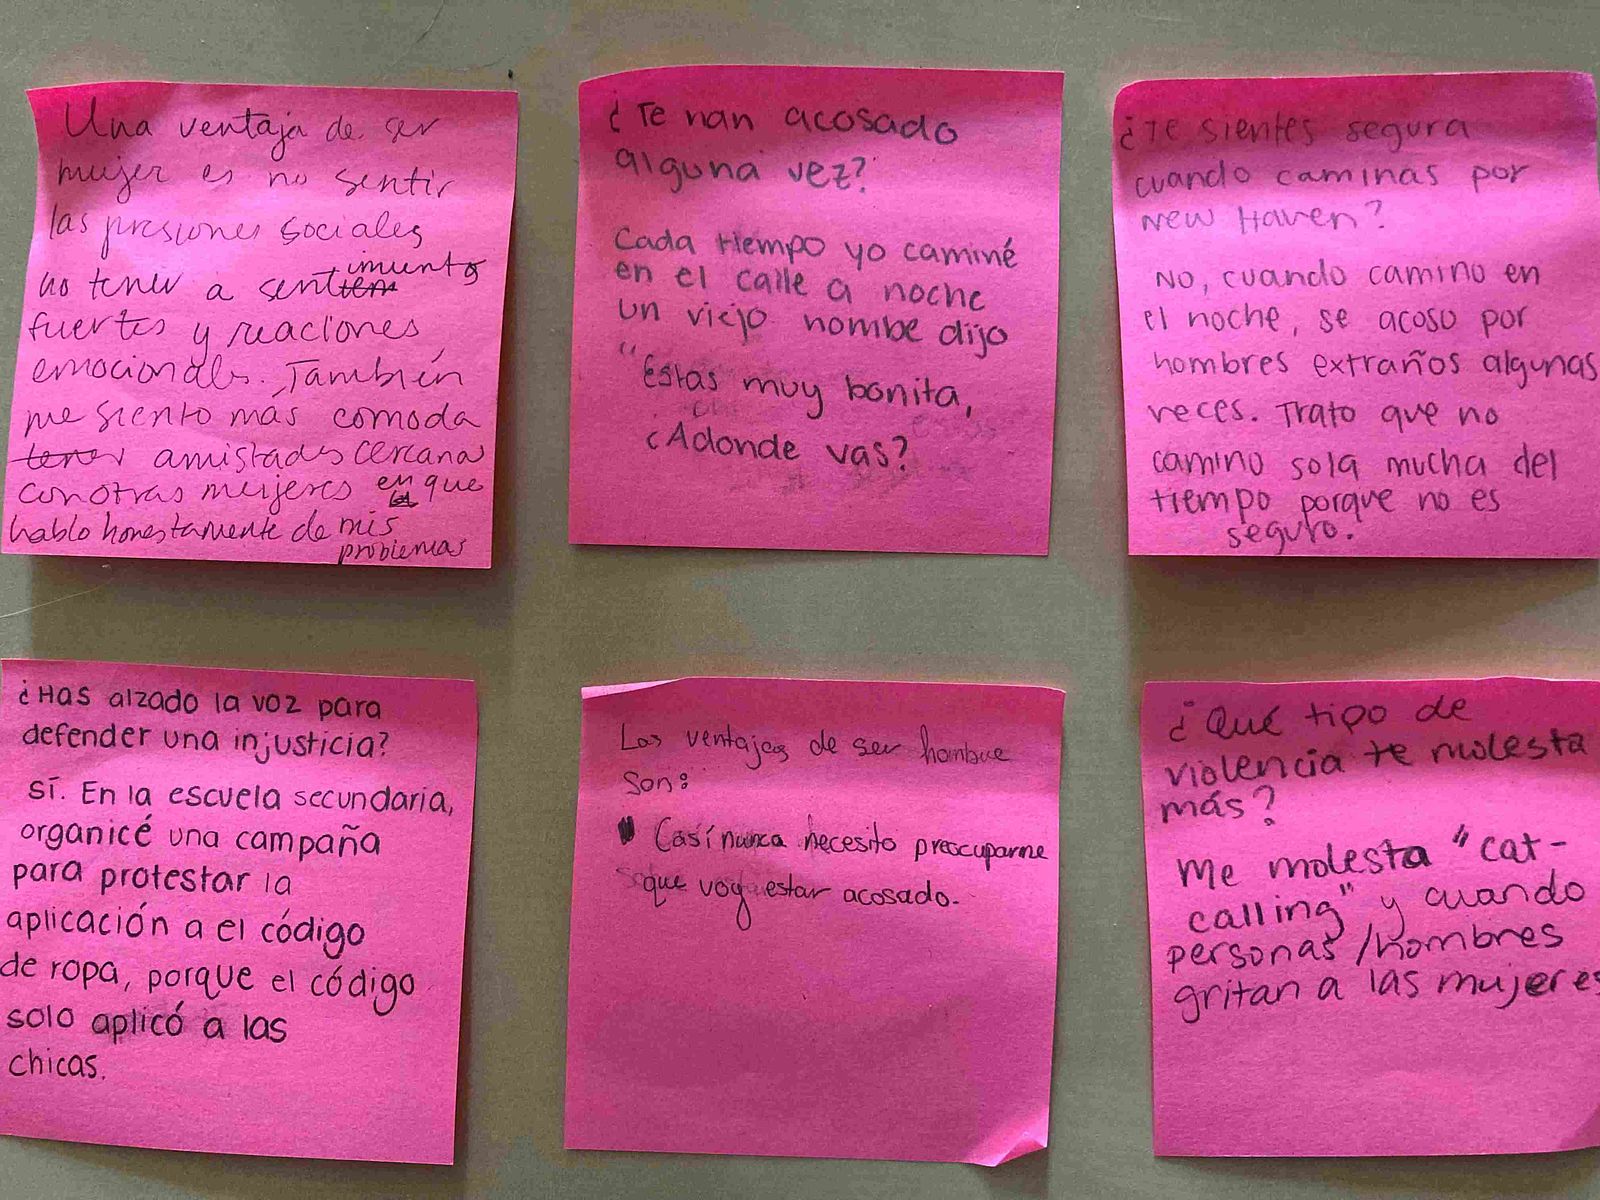 Una ventaja de ser
mujer es no sentir
las presiones sociales
no tener a sentimientos
fuertes y reaciones
emocionals. También
me siento más comoda
tener amistades cercanas
con otras mujeres en que
hablo honestamente de mis
problemas
¿Te han acosado
alguna vez?
Cada tiempo yo caminé
en el calle a noche
un viejo hombre dijo
"Estas muy bonita,
¿Adonde vas?
¿Te sientes segura
cuando caminas por
New Haven?
No, cuando camino en
el noche, se acoso por
hombres extraños algunas
veces. Trato que no
camino sola mucha del
tiempo porque no es
seguro.
¿Has alzado la voz para
defender una injusticia?
Sí. En la escuela secundaria,
organicé una campaña
para protestar la
aplicación a el código
de ropa, porque el código
solo aplicó a las
chicas.
Las ventajas de ser hombre
son:
Casí nunca necesito preocuparme
que voy estar acosado.
¿Qué tipo de
violencia te molesta
más?
Me molesta "cat-
calling" y cuando
personas/hombres
gritan a las mujeres